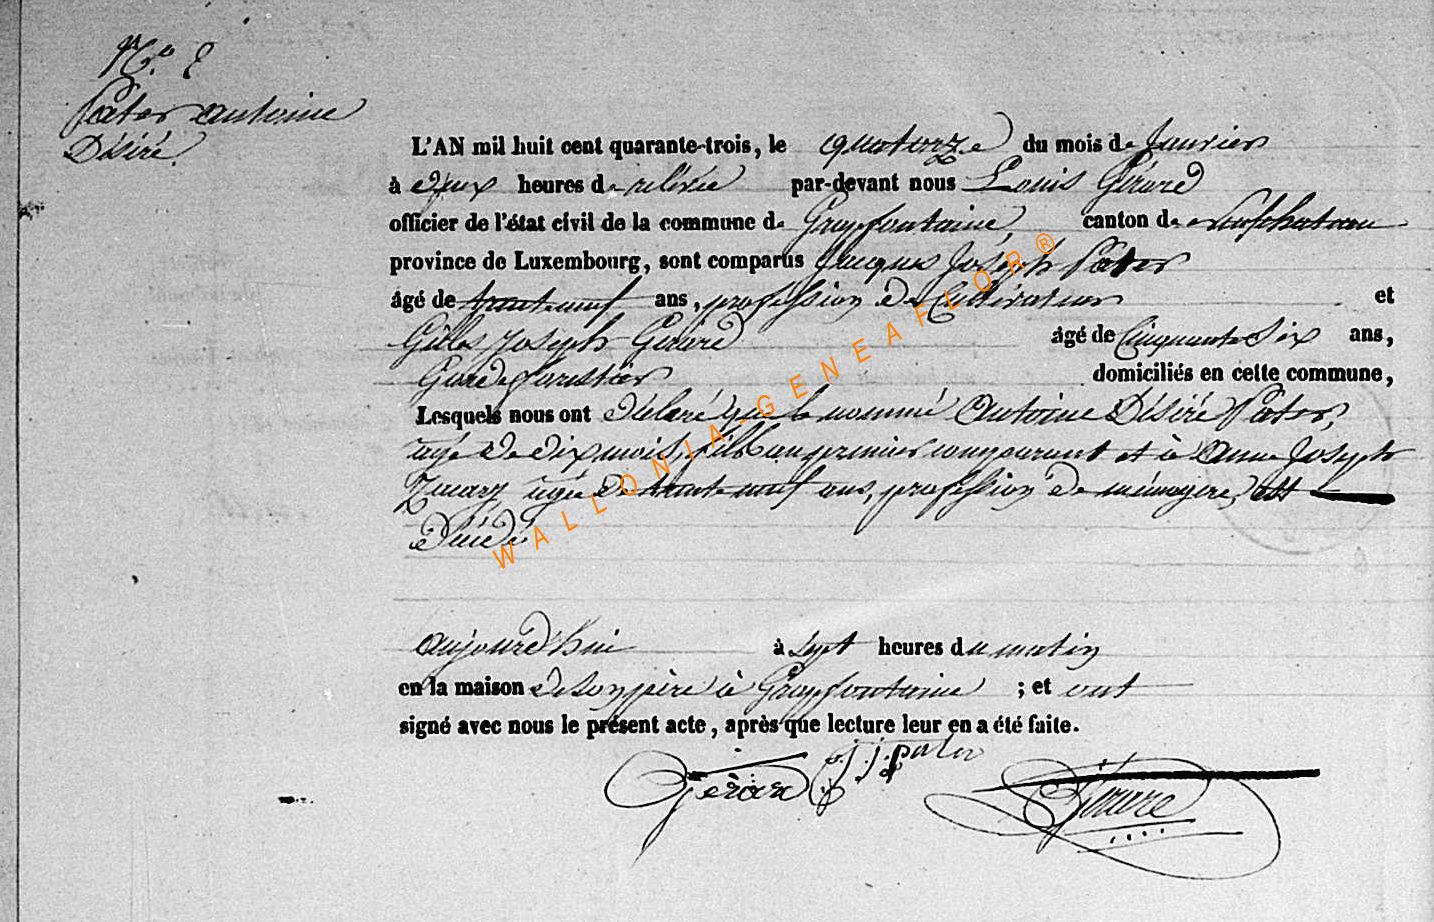 N.o 2
Pator antoine
Désiré.
L'AN mil huit cent quarante-trois, le quatorze du mois de Janvier
à deux heures de relevée par-devant nous Louis Gérard
officier de l'état civil de la commune de Grapfontaine, canton de neufchateau
province de Luxembourg, sont comparus Jacques Joseph Pator
âgé de trente neuf ans, profession de Cultivateur et
Gilles Joseph Gérard âgé de Cinquante Six ans,
Garde forestier domiciliés en cette commune,
Lesquels nous ont déclaré que le nommé Antoine Désiré Pator,
agé de dix mois, fils au premier comparant et à Anne Joseph
agée de trente neuf ans, profession de ménagere, est
décédé
aujourd'hui à sept heures du matin
en la maison de son père à Grapfontaine ; et ont
signé avec nous le présent acte, après que lecture leur en a été faite.
j. j. pator
Gérard Gérard
WALLONIA-GENEAFLOR®